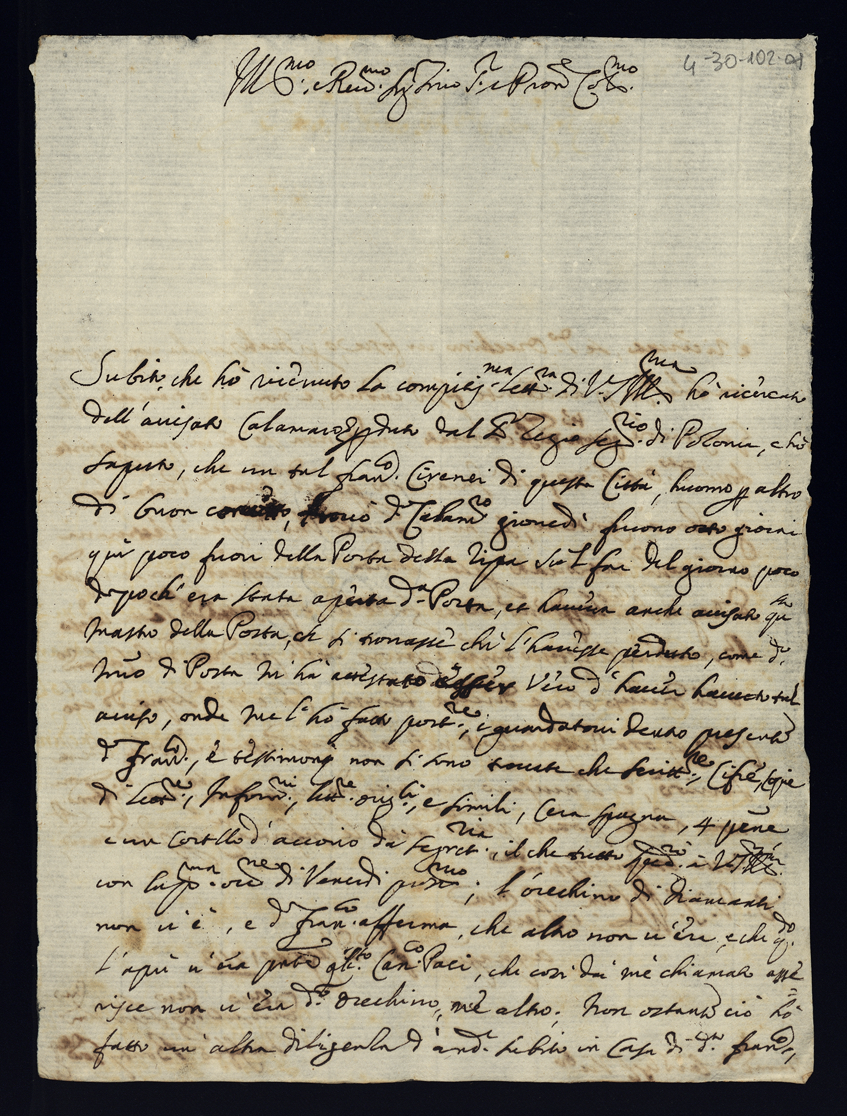 4-30-102-01
Ill.mo e Rev.mo Sig.r mio S.r e Pron.e Col.mo
Subito, che hò riceuuto La compitis.ma Lett.ra di V.S. Ill.ma hò ricercato
dell'auisato Calamaro perduto dal S.r Regio Seg.rio di Polonia, e hò
saputo, che un tal Fran.co Cirenei di questa Città, huomo p altro
di buon, trouò d.o Calam.ro giouedì furono otto giorni
quì poco fuori della Porta della Ripa sù'l far del giorno poco
dopoch'era stata aperta d.a Porta, et haueua anche auisato
Mastro della Posta, che si trouasse chi l'hauesse perduto, come d.o
M.ro di Posta m'hà attestato esser vero d'hauer hauuto tal
auiso, onde me l'hò fatto port.re, e guardatoui dentro presenti
d.o Fran.co, e testimonij non si sono trouate che scritt.re, Cifre, copie
di Lett.re, Inform.ni, lett.re orig.li, e simili, Cera spagna, 4 penne
e un cortello d'auorio da segret.ria, il che tutto à V.S. Ill.ma
con di Venerdì pross.mo; l'orechino di diamanti
non u'è, e d.o Fran.co afferma, che altro non u'era, e che q.do
l'aprì u'era pnte Can.co Paci, che così da mè chiamato asse
risce non u'era d.o orechino, nè altro. Non ostante ciò hò
fatto un'altra diligenza d'and.e subito in Casa di d.o Fran.co,